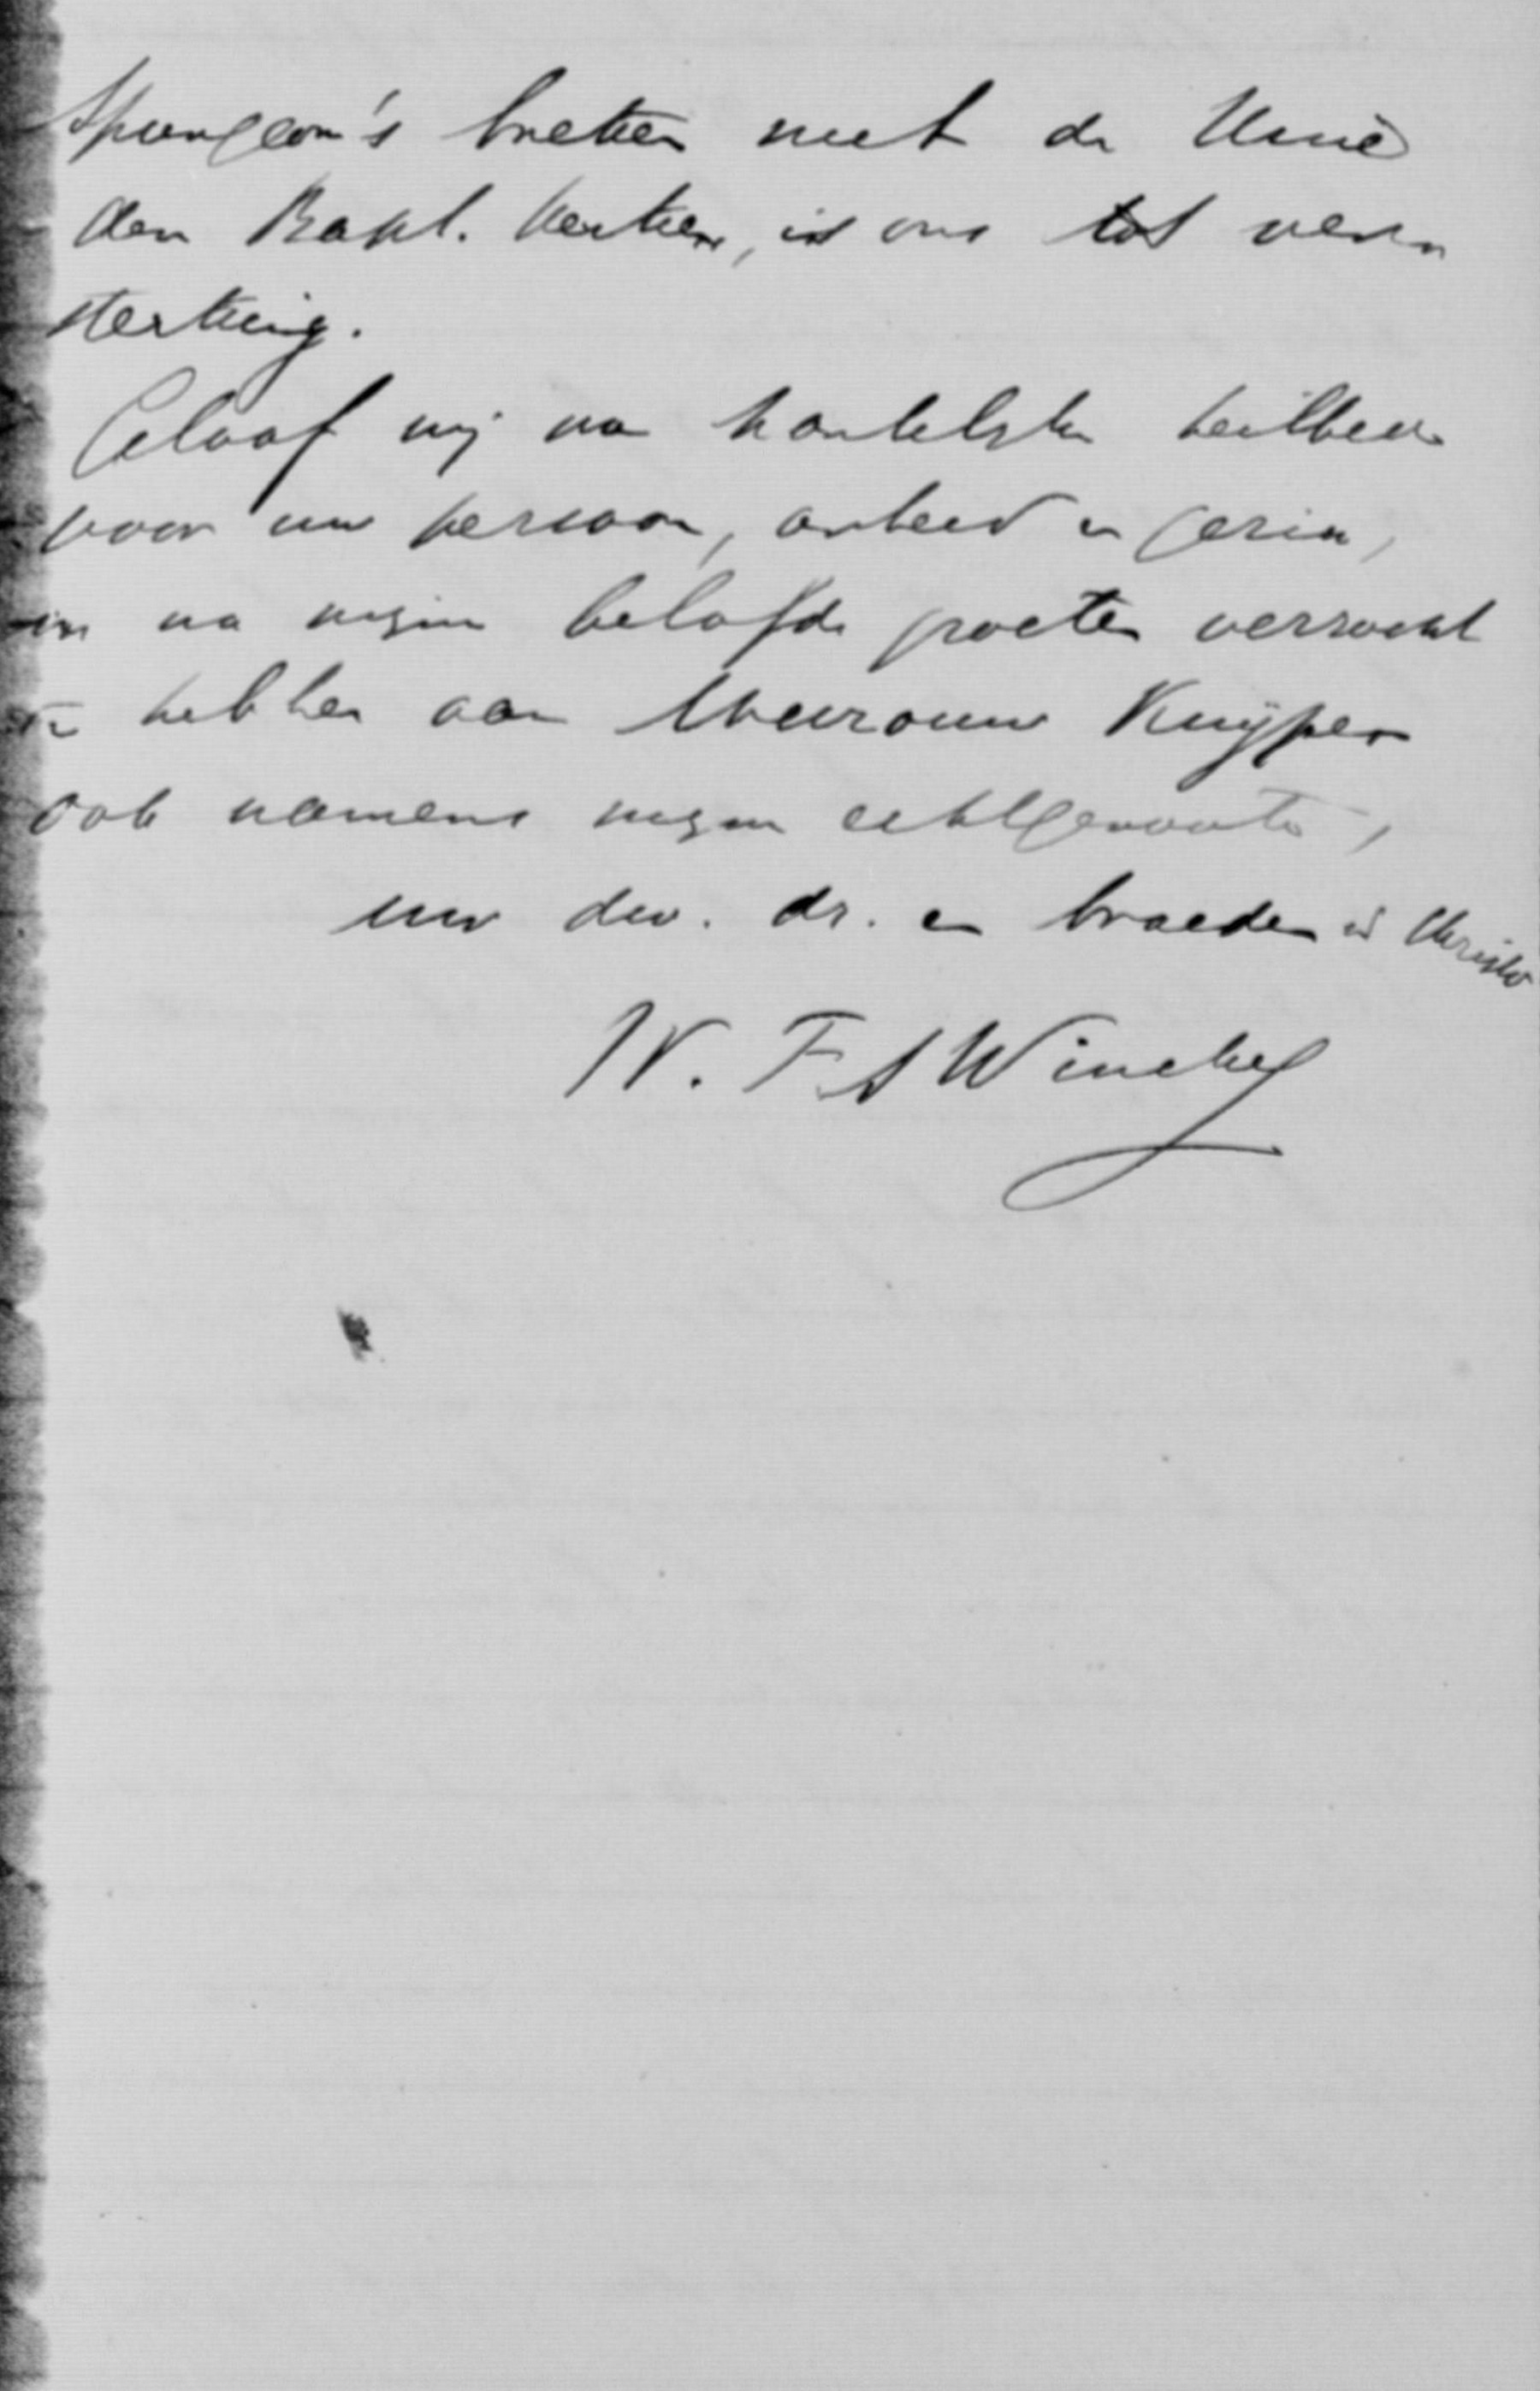 Spurgeon's breken met de Unie
der Bapt. kerken, is ons tot ver-
sterking.
Geloof mij na hartelijke heilbede
voor uw persoon, arbeid en gezin,
en na mijne beleefde groeten verzocht
te hebben aan Mevrouw Kuyper
ook namens mijn echtgenoote,
uw dw. dr. en broeder in Christo
W. F. A Winckel